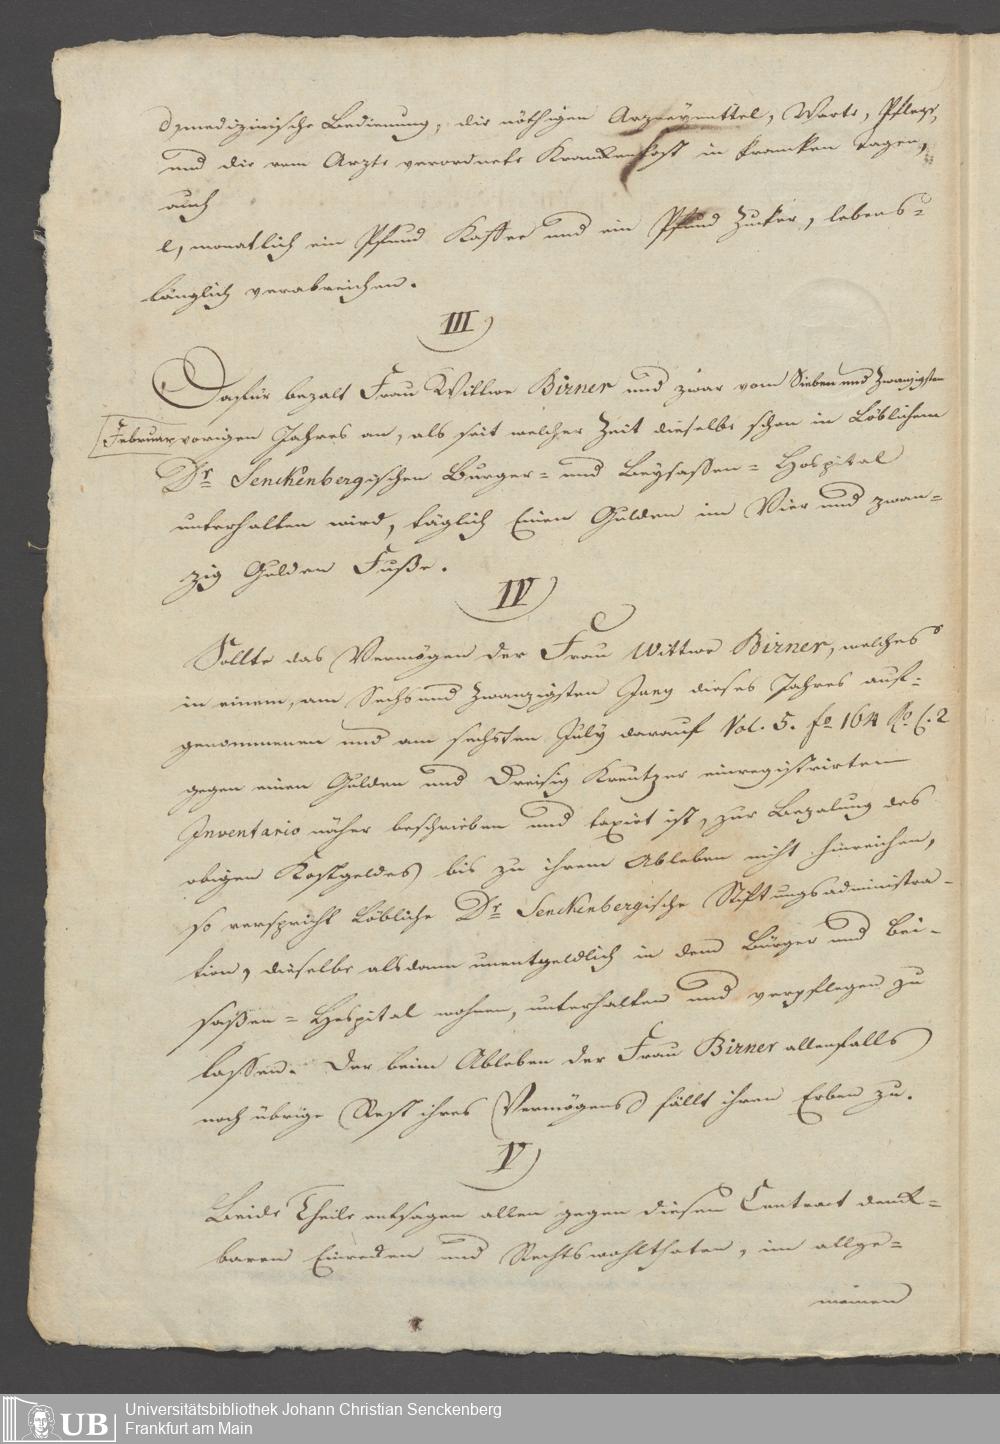 d, medizinische Bedienung, die nöthigen Arzneymittel, Warte, Pflege,
und die vom Arzte verordnete Krankenkost in kranken Tagen,
auch
e, monatlich ein Pfund Kaffee und ein Pfund Zucker, lebens=
länglich verabreichen.
III
Dafür bezalt Frau Wittwe Birner und zwar vom Sieben und Zwanzigsten
Februar vorigen Jahres an, als seit welcher Zeit dieselbe schon in Löblichem
Dr. Senckenbergischen Burger= und Beysaßen=Hospital
unterhalten wird, täglich Einen Gulden im Vier und zwan=
zig Gulden Fuße.
IV
Sollte das Vermögen der Frau Wittwe Birner, welches
in einem, am Sechs und Zwanzigsten Juny dieses Jahres auf=
genommenen und am sechsten July darauf Vol. 5. fo. 164
gegen einen Gulden und Dreisig Kreutzer einregistrirten
Inventario näher beschrieben und taxirt ist, zur Bezalung des
obigen Kostgeldes bis zu ihrem Ableben nicht hinreichen,
so verspricht Löbliche Dr. Senckenbergische Stiftungsadministra-
tion, dieselbe alsdann unentgeldlich in dem Bürger und Bei-
saßen=Hospital wohnen, unterhalten und verpflegen zu
lassen. Der beim Ableben der Frau Birner allenfalls
noch übrige Rest ihres Vermögens fällt ihren Erben zu.
V
Beide Theile entsagen allen gegen diesen Contract denk=
baren Einreden und Rechtswohlthaten, im allge=
meinen
UB Universitätsbibliothek Johann Christian Senckenberg
Frankfurt am Main